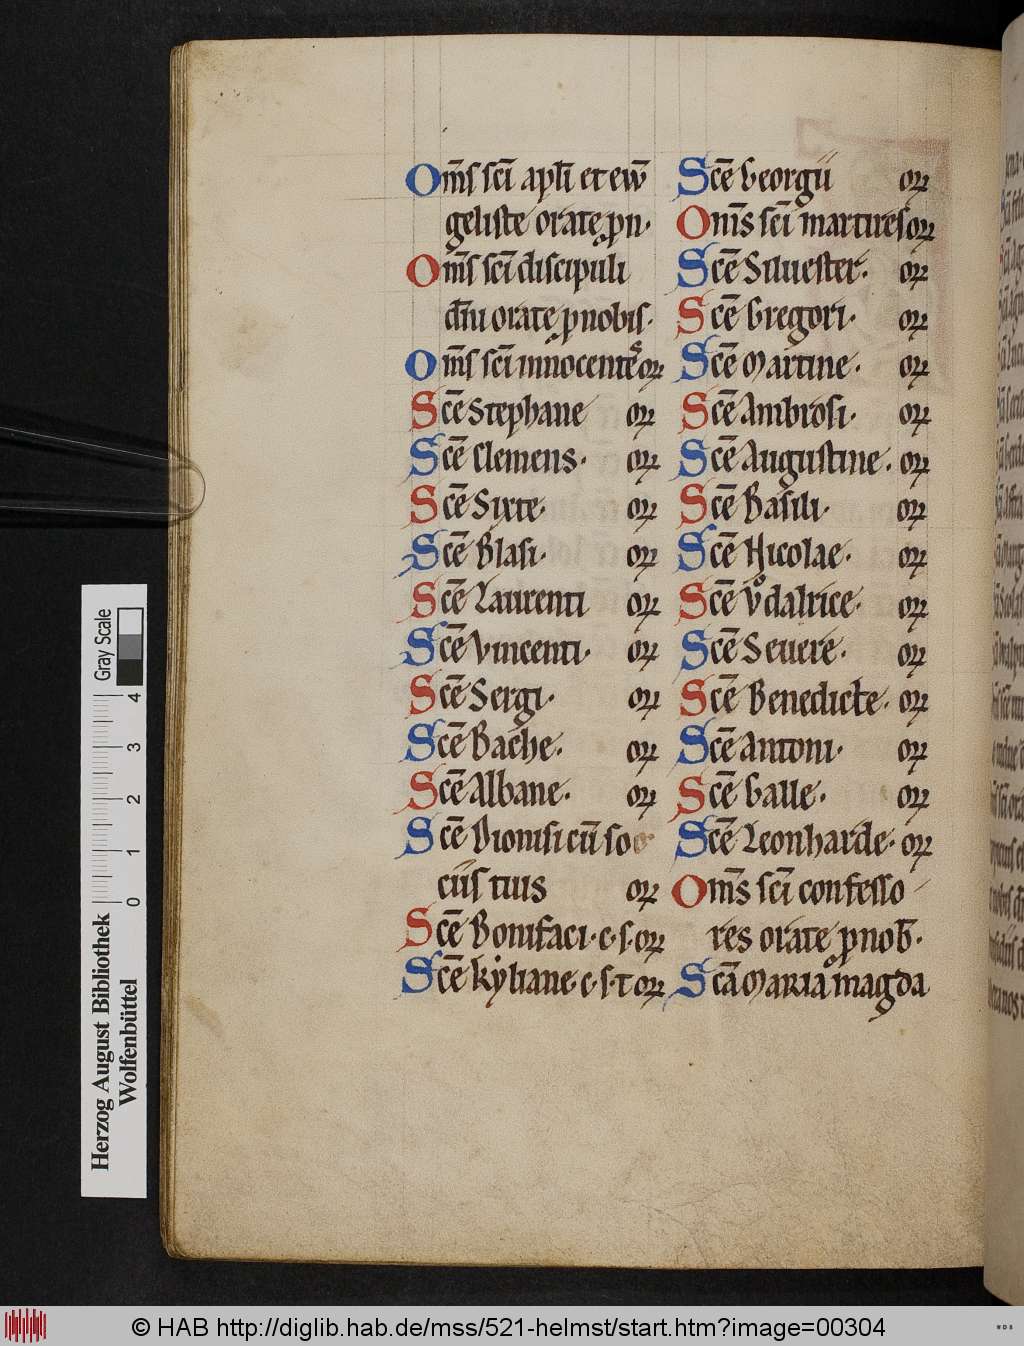 Om̄s sc̄i apl̄i et ew̄
geliste orate p n·
Om̄s sc̄i discipuli
dn̄i orate p nobis·
Om̄s sc̄i innocentes or
Sc̄e Stephane or
Sc̄e Clemens· or
Sc̄e Sixte· or
Sc̄e Blasi· or
Sc̄e Laurenti or
Sc̄e Vincenti· or
Sc̄e Sergi· or
Sc̄e Bache· or
Sc̄e Albane· or
Sc̄e Dionisi cū so
ciis tuis or
Sc̄e Bonifaci·c·s·or
Sc̄e kyliane·c·s·t or
Sc̄e Georgii or
Om̄s sc̄i martires or
Sc̄e Siluester· or
Sc̄e Gregori· or
Sc̄e Martine· or
Sc̄e Ambrosi· or
Sc̄e Augustine· or
Sc̄e Basili· or
Sc̄e Nicolae· or
Sc̄e Vͦdalrice· or
Sc̄e Seuere· or
Sc̄e Benedicte· or
Sc̄e Antoni· or
Sc̄e Galle· or
Sc̄e Leonharde· or
Om̄s sc̄i confesso
res orate p nob̄·
Sc̄a Maria magda
Gray Scale
0 1 2 3 4
Herzog August Bibliothek
Wolfenbüttel
© HAB http://diglib.hab.de/mss/521-helmst/start.htm?image=00304